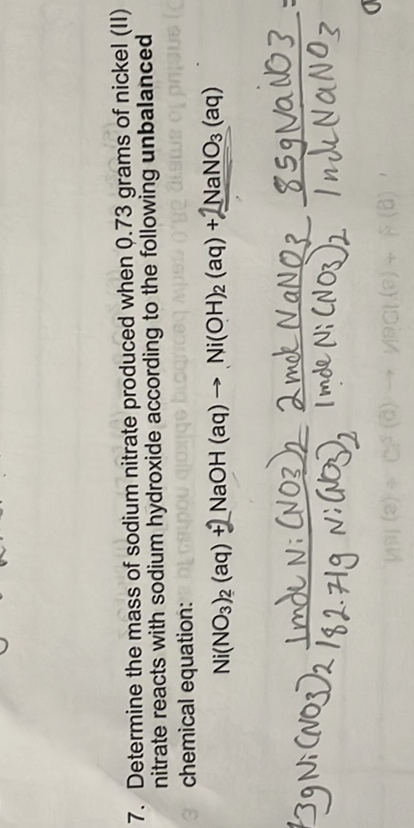 7. Determine the mass of sodium nitrate produced when 0.73 grams of nickel (II)
nitrate reacts with sodium hydroxide according to the following unbalanced
chemical equation:
Ni(NO3)2 (aq) + 2 NaOH (aq) → Ni(OH)2 (aq) + 2 NaNO3 (aq)
73g Ni(NO3)2 1mole Ni(NO3)2 2 mole NaNO3 85g NaNO3 =
182.71g Ni(NO3)2 1mole Ni(NO3)2 1mole NaNO3